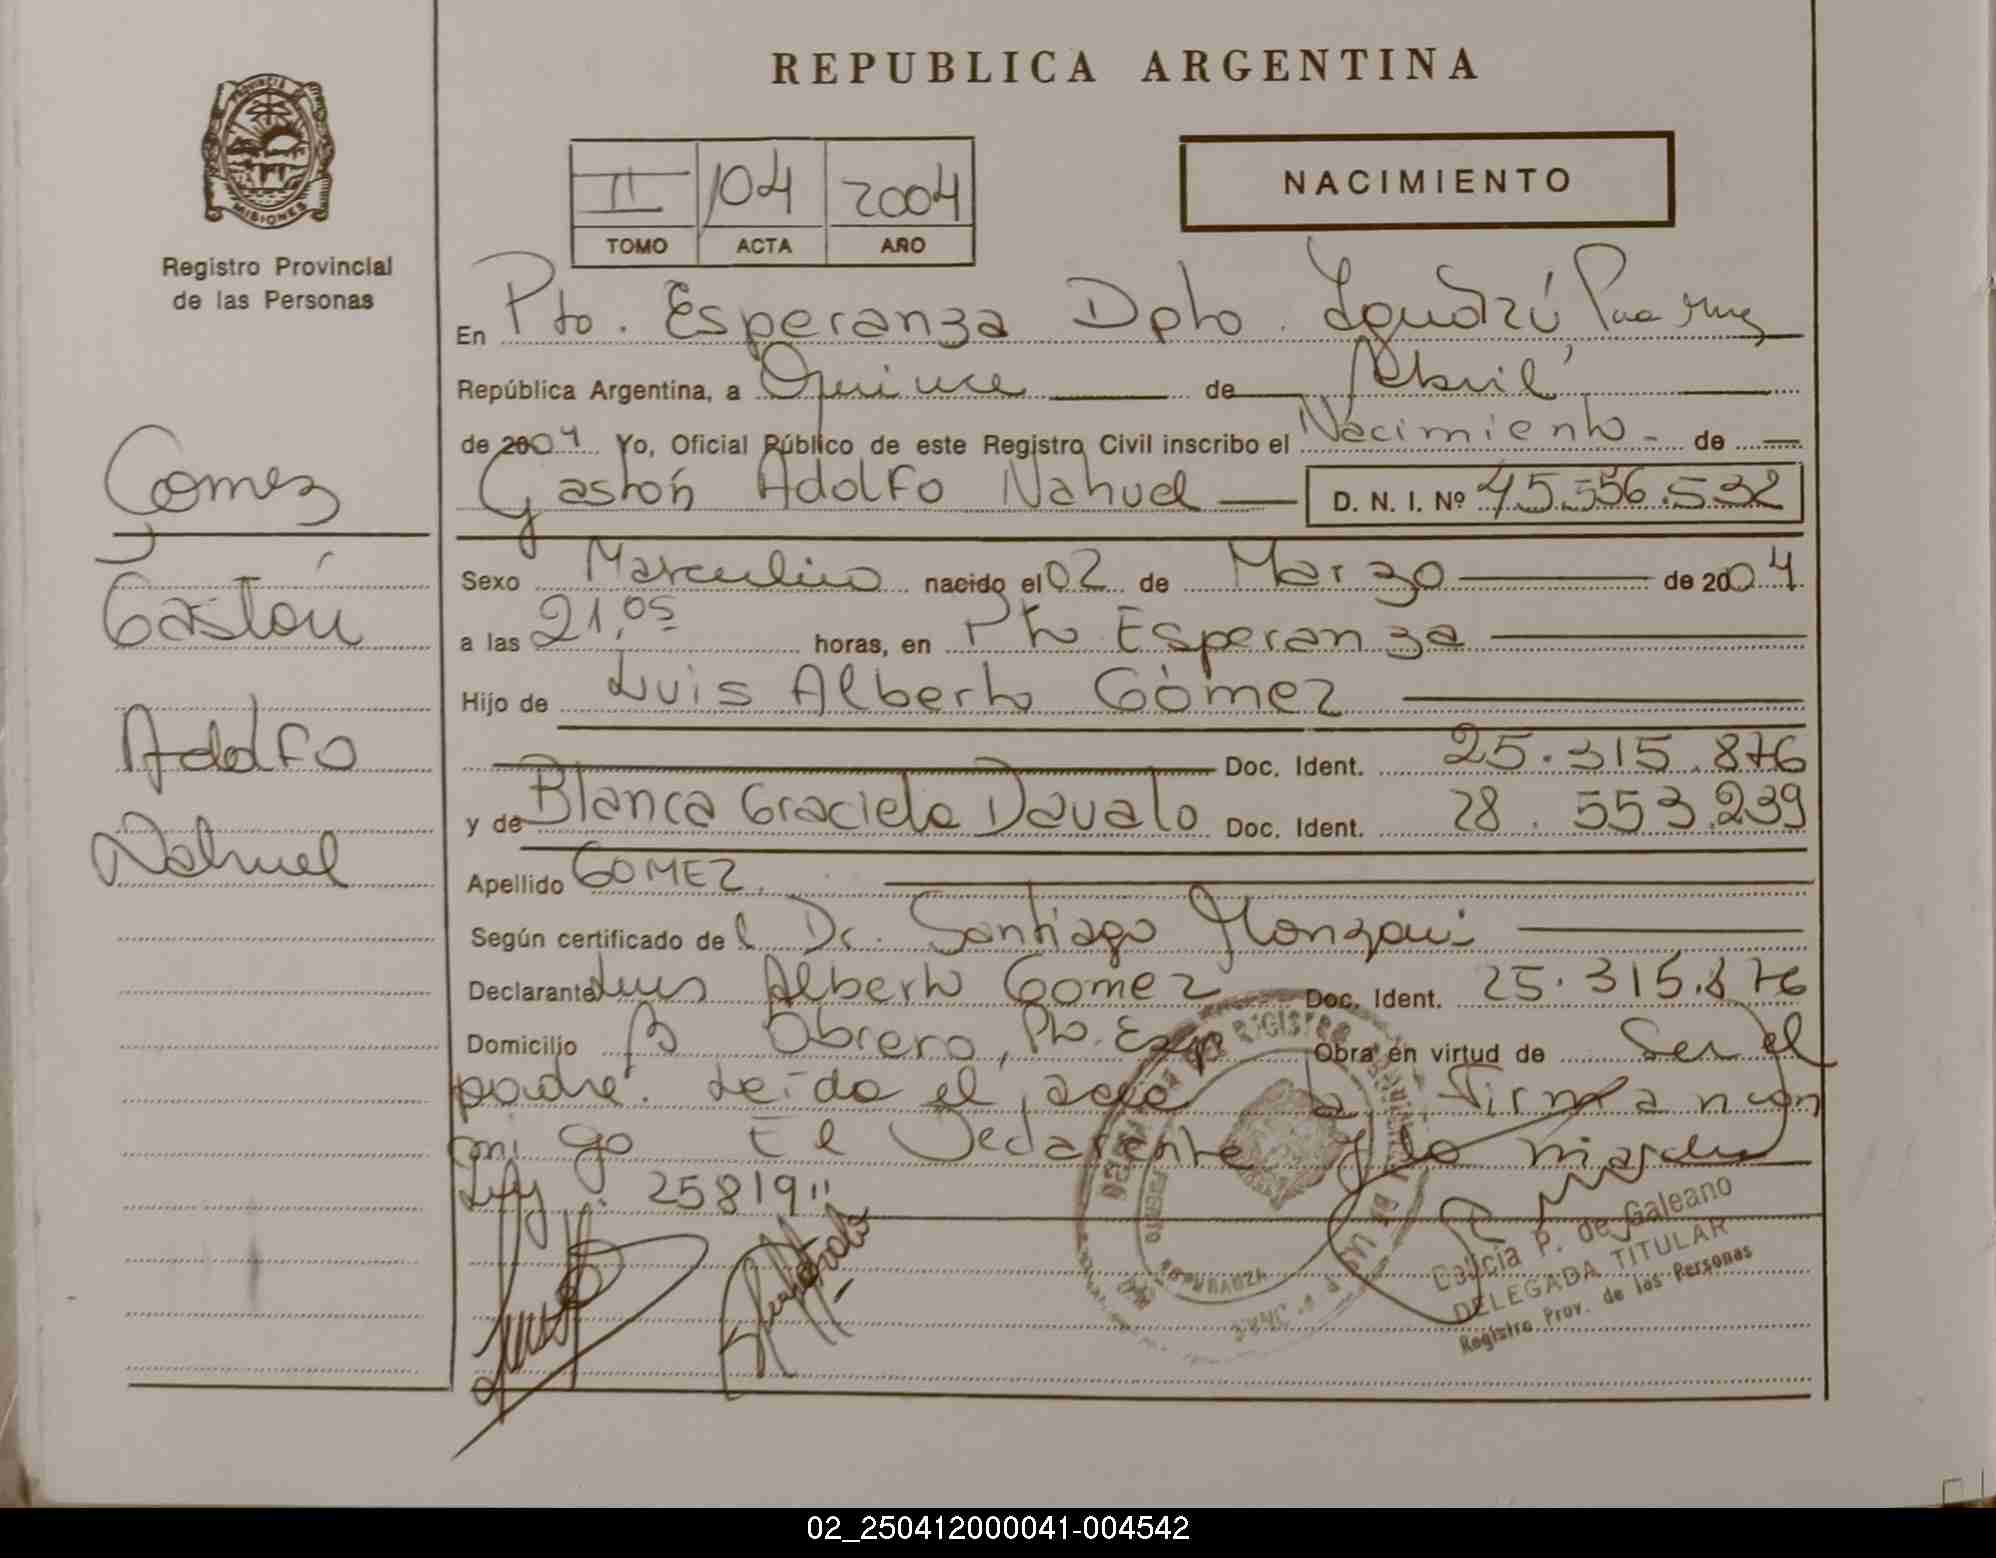 REPUBLICA ARGENTINA
PROVINCIA DE
MISIONES
Registro Provincial
de las Personas
II 104 2004
TOMO ACTA AÑO
NACIMIENTO
En Pto. Esperanza Dpto. Iguazú
República Argentina, a Quince de Abril
de 2004 Yo, Oficial Público de este Registro Civil inscribo el Nacimiento - de
Gastón Adolfo Nahuel D. N. I. Nº 45.556.532
Sexo Masculino nacido el 02 de Marzo de 2004
a las 21,05 horas, en Pto Esperanza
Hijo de Luis Alberto Gómez
Doc. Ident. 25.315.876
y de Blanca Graciela Davalo Doc. Ident. 28.553.239
Apellido GOMEZ
Según certificado del Dr. Santiago
Declarante Luis Alberto Gomez Doc. Ident. 25.315.876
Domicilio B Obrero, Pto. Esp Obra en virtud de Ser el
padre. Leída el acta la firman con
migo El Declarante y la madre
Ley: 25819"
Gomez
Gastón
Adolfo
Nahuel
P. de Galeano
DELEGADA TITULAR
Registro Prov. de las Personas
02_250412000041-004542